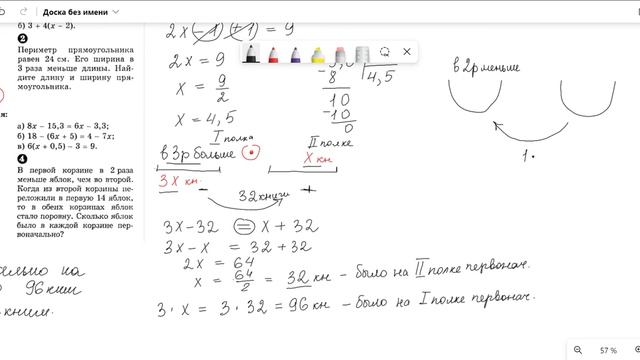 Доска без имени
б) 3 + 4(x − 2).
2
Периметр прямоугольника
равен 24 см. Его ширина в
3 раза меньше длины. Най-
дите длину и ширину пря-
моугольника.
а) 8x − 15,3 = 6x − 3,3;
б) 18 − (6x + 5) = 4 − 7x;
в) 6(x + 0,5) − 3 = 9.
4
В первой корзине в 2 раза
меньше яблок, чем во второй.
Когда из второй корзины пе-
реложили в первую 14 яблок,
то в обеих корзинах яблок
стало поровну. Сколько яблок
было в каждой корзине пер-
воначально?
96 книг
книг.
2x − 1 + 1 = 9
2x = 9
x = 9/2
x = 4,5
8
4,5
10
−10
0
в 2р меньше
1.
I полка
II полке
в 3р больше
x кн
3x кн.
− 32 книги +
3x−32 = x + 32
3x − x = 32+32
2x = 64
x = 64/2 = 32 кн − было на II полке первонач.
3 · x = 3 · 32 = 96 кн − было на I полке первонач.
57 %